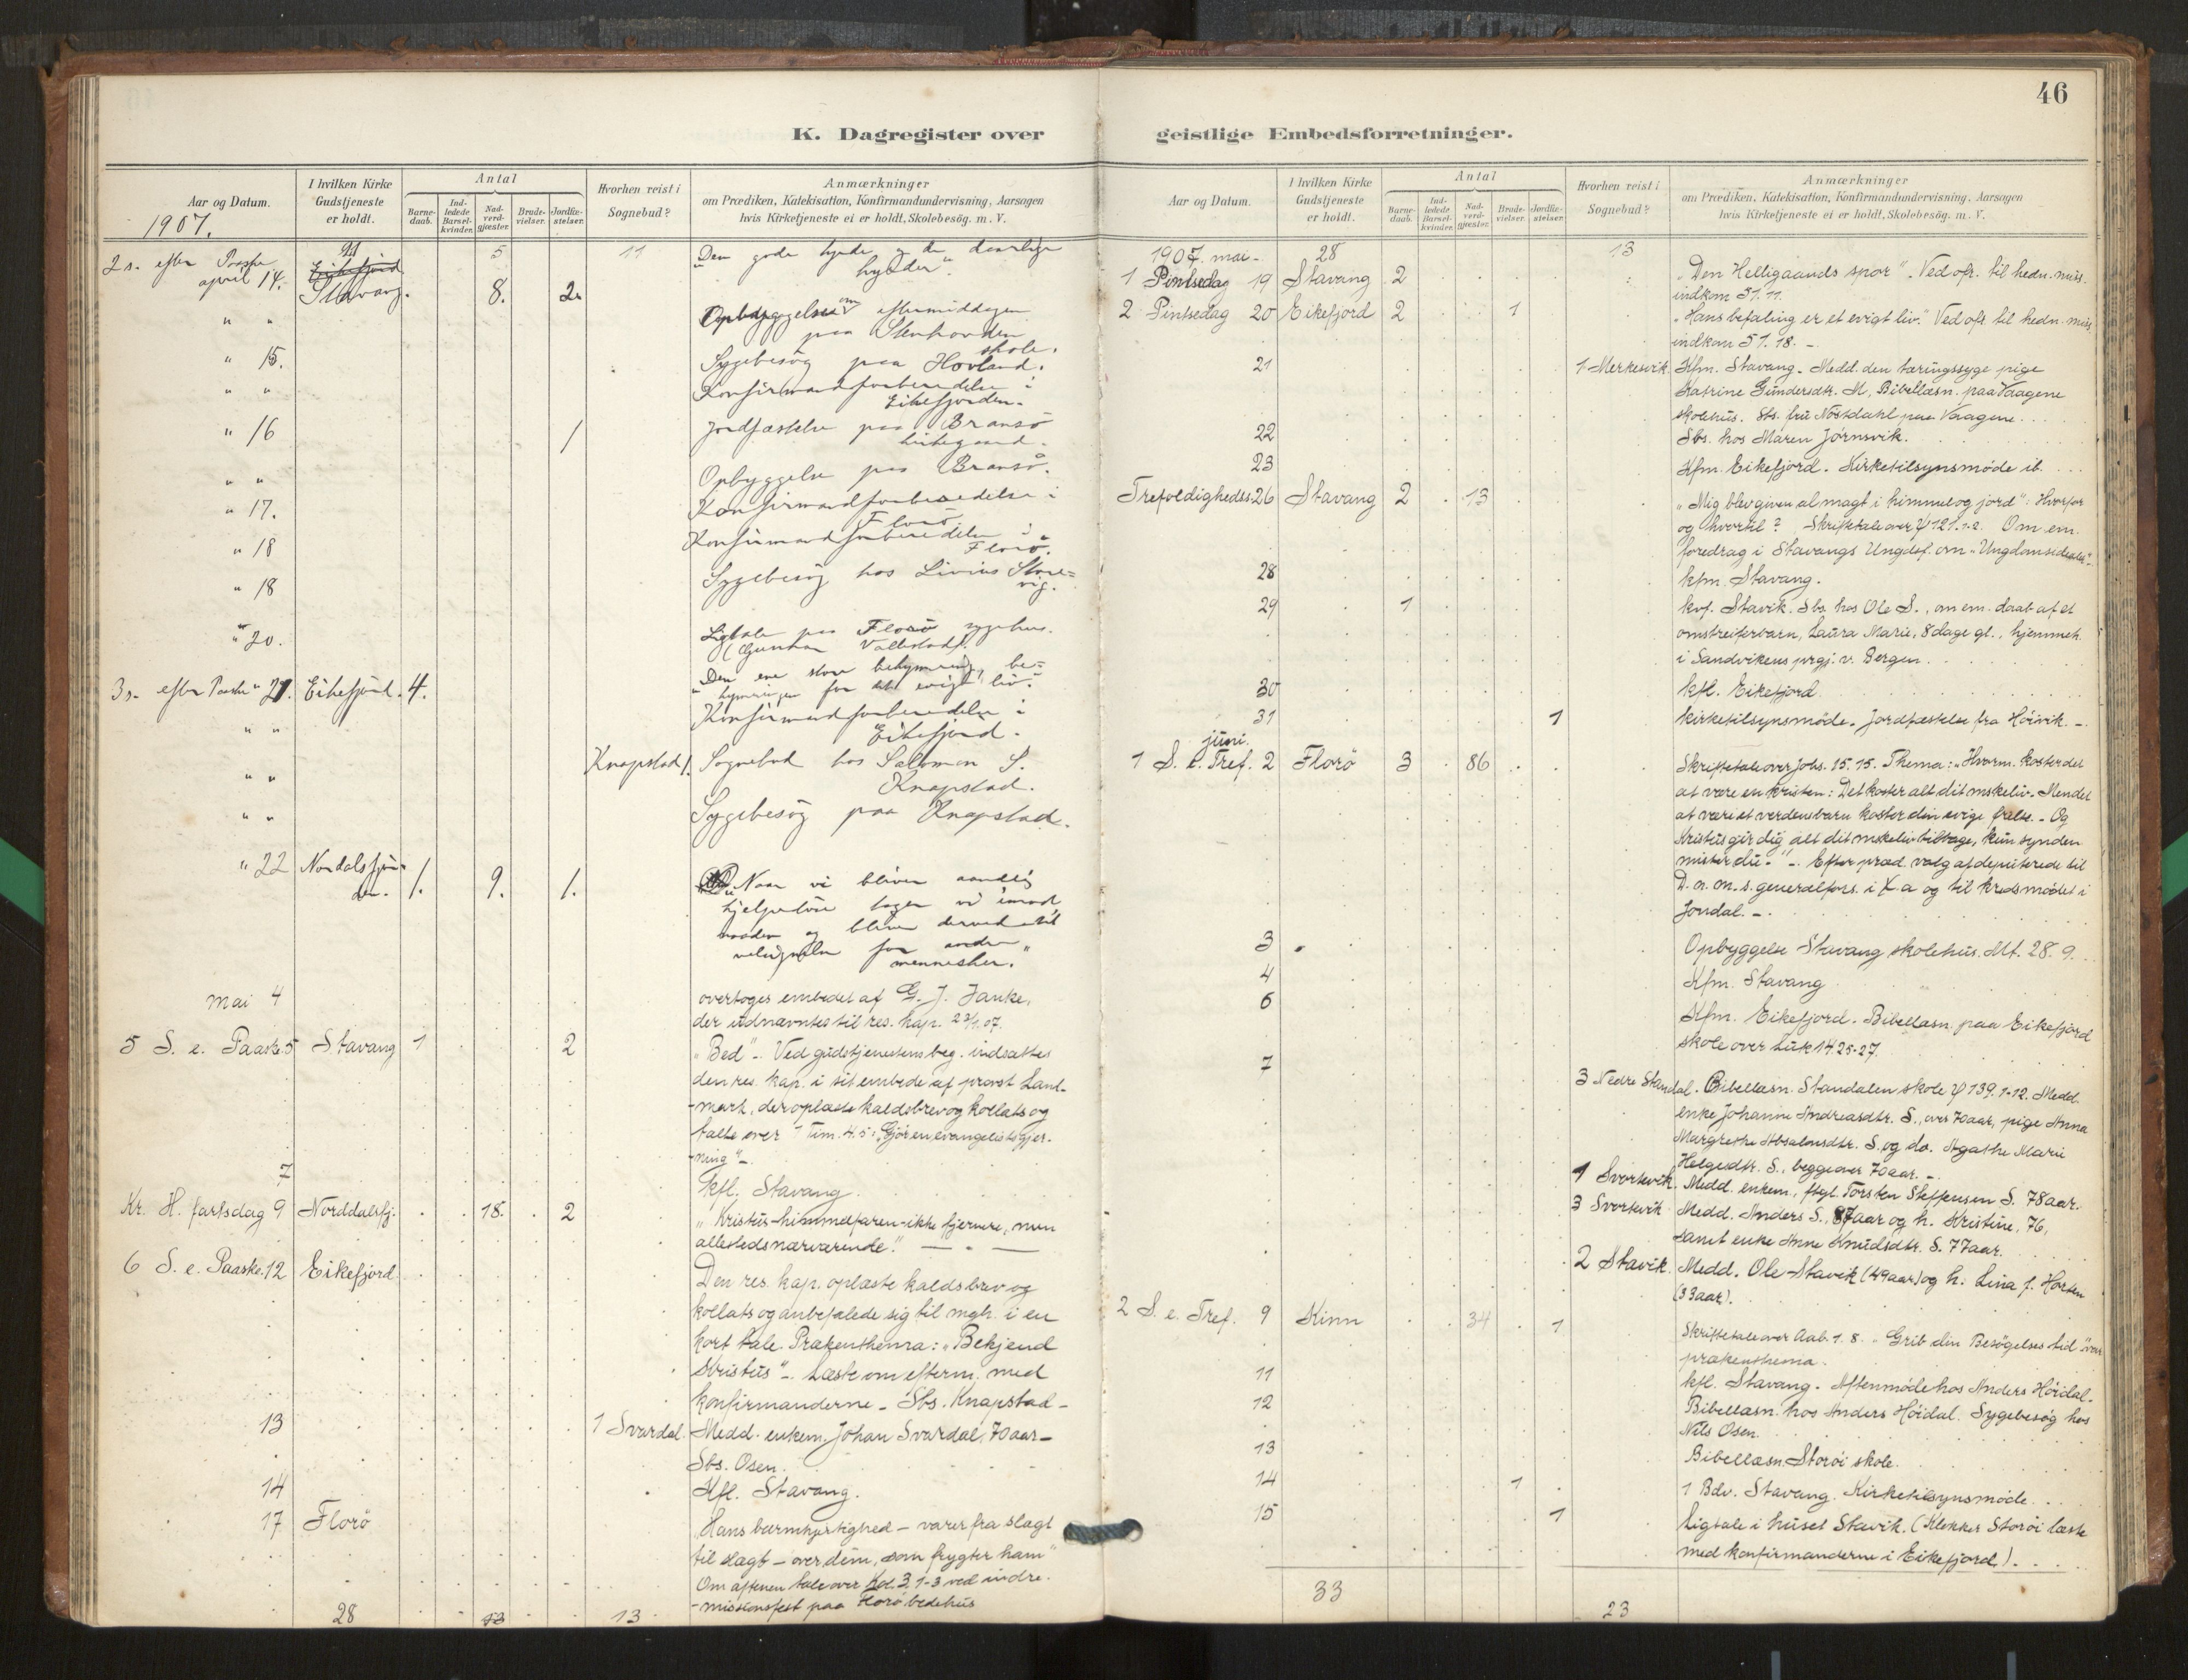 46
K. Dagregister over geistlige Embedsforretninger.
Aar og Datum.
I hvilken Kirke Gudstjeneste er holdt.
Antal
Barne-daab.
Ind-ledede Barsel-kvinder.
Nad-verd-gjæster.
Brude-vielser.
Jordfæ-stelser.
Hvorhen reist i Sognebud?
Anmærkninger
om Prædiken, Katekisation, Konfirmandundervisning, Aarsagen
hvis Kirketjeneste ei er holdt, Skolebesøg. m. V.
1907.
21 5 11
2 s. efter Paaske april 14. Eikefjord Stavang. 8. 2. "Den gode hyrde og de daarlige
hyrder".
" " Opbyggelse om eftermiddagen
paa Stenhovden
skole.
" 15. Sygebesøg paa Hovland.
" " Konfirmandforberedelse i
Eikefjorden.
" 16 1 Jordfæstelse paa Bransø
kirkegaard.
" " Opbyggelse paa Bransø.
" 17. Konfirmandforberedelse i
Florø.
" 18 Konfirmandforberedelse i
Florø.
" 18 Sygebesøg hos Livius Store=
vig.
" 20. Ligtale paa Florø sygehus.
(Gunhar )
3 s. efter Paaske " 21. Eikefjord. 4. "Den ene store bekymring, be=
kymringen for et evigt liv."
" " Konfirmandforberedelse i
Eikefjord.
" " Knapstad 1. Sognebud hos Salomon S.
Knapstad.
" " Sygebesøg paa Knapstad.
" 22 Nordalsfjor=
den. 1. 9. 1. "Naar vi bliver aandelig
hjelpeløse tager vi imod
naaden og bliver derved til
velsignelse for andre
mennesker."
mai 4 overtoges embedet af G. J. Janke,
der udnævntes til res. kap. 23/1.07.
5 S. e. Paaske. 5 Stavang 1 2 "Bed" - Ved gudstjenestens beg. indsattes
den res. kap. i sit embede af provst Land-
-mark, der oplæste kaldsbrev og kollats og
talte over 1 Tim. 4.5: "Gjør en evangelists gjer-
-ning" -
7 kfl. Stavang.
Kr. H. fartsdag 9 Norddalsfj. 18. 2 "Kristus-himmelfaren-ikke fjernere, men
allestedsnærværende."
6 S. e. Paaske. 12 Eikefjord. Den res. kap. oplæste kaldsbrev og
kollats og anbefalede sig til mgh. i en
kort tale. Prækenthema: "Bekjend
Kristus" - Læste om efterm. med
konfirmanderne - Sbs. Knapstad -
13 1 Svardal. Medd. enkem. Johan Svardal, 70 aar -
Sbs. Osen.
14 Kfl. Stavang.
17 Florö "Hans barmhjertighed - varer fra slægt
til slægt - over dem, som frygter ham"
Om aftenen tale over Kol. 3, 1-3 ved indre-
-missionsfest paa Florö bedehus
28 13 13
Aar og Datum.
I hvilken Kirke Gudstjeneste er holdt.
Antal
Barne-daab.
Ind-ledede Barsel-kvinder.
Nad-verd-gjæster.
Brude-vielser.
Jordfæ-stelser.
Hvorhen reist i Sognebud?
Anmærkninger
om Prædiken, Katekisation, Konfirmandundervisning, Aarsagen
hvis Kirketjeneste ei er holdt, Skolebesøg. m. V.
1907. mai - 28 13
1 Pintsedag 19 Stavang 2 "Den Helligaands spor". Ved ofr. til hedn. miss.
indkom 51.11.
2 Pintsedag 20 Eikefjord 2 1 "Hans befaling er et evigt liv." Ved ofr. til hedn. miss.
indkom 51.18. -
21 1 Merkesvik. Kfm. Stavang. Medd. den tæringssyge pige
Katrine Gundersdtr. M, Bibellæsn. paa Vaagene
skolehus. Sbs. fru Nøstdahl paa Vaagene.
22 Sbs. hos Maren Jørnsvik.
23 Kfm. Eikefjord. Kirketilsynsmøde ib.
Trefoldighedss. 26 Stavang 2 13 "Mig blev given al magt i himmel og jord": Hvorfor
og hvortil? Skriftetale over ψ 121.1-2. Om em.
foredrag i Stavangs Ungdsf. om "Ungdomsidealer".
28 kfm. Stavang.
29 1 kvf. Stavik. Sbs. hos Ole S., om em. daab af et
omstreiferbarn, Laura Marie, 8 dage gl., hjemmeh.
i Sandvikens prgj. v. Bergen.
30 kfl. Eikefjord
31 1 kirketilsynsmøde. Jordfæstelse fra Höivik. -
juni.
1 S. e. Tref. 2 Florö 3 86 Skriftetale over Johs. 15.15. Thema: "Hvorm. koster det
at være en kristen: Det koster alt dit mskeliv. Men det
at være et verdensbarn koster din evige frelse. - Og
Kristus gir dig alt dit mskeliv tilbage, kun synden
mister du -" - Efter præd. valg af deputerede til
D. n. m. s. generalfors. i X.a og til kredsmødet i
Jondal. -
3 Opbyggelse Stavang skolehus. Mt. 28. 9.
4 Kfm. Stavang
6 Kfm. Eikefjord. Bibellæsn. paa Eikefjord
skole over Luk 14.25-27.
7 3 Nedre Standal. Bibellæsn. Standalen skole ψ 139. 1-12. Medd.
enke Johanne Andreasdtr. S., over 70 aar, pige Anna
Margrethe Absalonsdtr. S. og do. Agathe Marie
Helgesdtr. S., begge over 70 aar. -
1 Svortevik. Medd. enkem., ftgl. Torsten Steffensen S. 78 aar.
3 Svortevik Medd. Anders S., 87 aar og h. Kristine, 76,
samt enke Anne Knudsdtr. S. 77 aar.
2 Stavik. Medd. Ole Stavik (49 aar) og h. Lina f. Horsen
(33 aar).
2 S. e. Tref. 9 Kinn 34 1 Skriftetale over Aab. 1. 8. "Grib din Besøgelses tid" var
prækenthema.
11 kfl. Stavang. Aftenmøde hos Anders Höidal.
12 Bibellæsn. hos Anders Höidal. Sygebesøg hos
Nils Osen.
13 Bibellæsn. Storöi skole.
14 1 1 Bdv. Stavang. Kirketilsynsmøde.
15 1 Ligtale i huset Stavik. (Klokker Storöi læste
med konfirmanderne i Eikefjord).
33 23